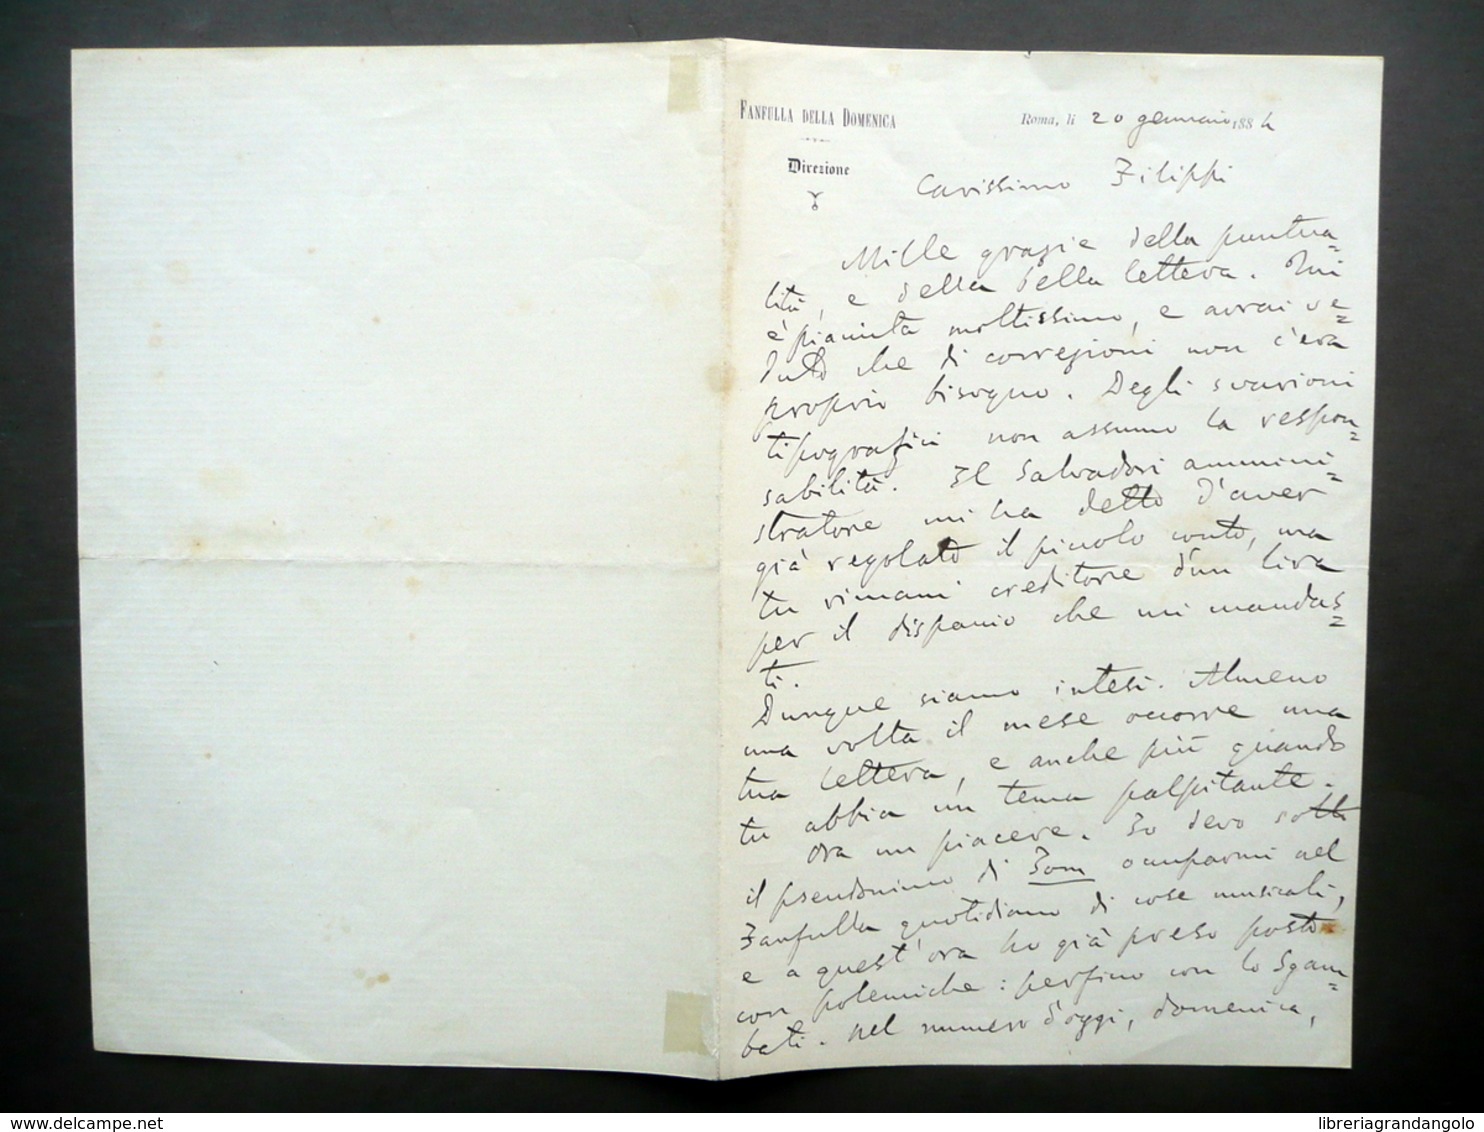 FANFULLA DELLA DOMENICA
Roma, li 20 gennaio 1884
Direzione
Carissimo Filippi
Mille grazie della puntua=
lità, e della bella lettera. Mi
è piaciuta moltissimo, e avrai ve=
duto che di correzioni non c'era
proprio bisogno. Degli svarioni
tipografici non assumo la respon=
sabilità. Il Salvadori ammini=
stratore mi ha detto d'aver
già regolato il piccolo conto, ma
tu rimani creditore d'un lira
per il dispaccio che mi mandas=
ti.
Dunque siamo intesi. Almeno
una volta il mese occorre una
tua lettera, e anche più quando
tu abbia un tema palpitante.
Ora un piacere. Io devo sotto
il pseudonimo di Tom occuparmi nel
Fanfulla quotidiano di cose musicali,
e a quest'ora ho già preso posto
con polemiche: perfino con lo Sgam=
bati. Nel numero d'oggi, domenica,
libreriagrandangolo